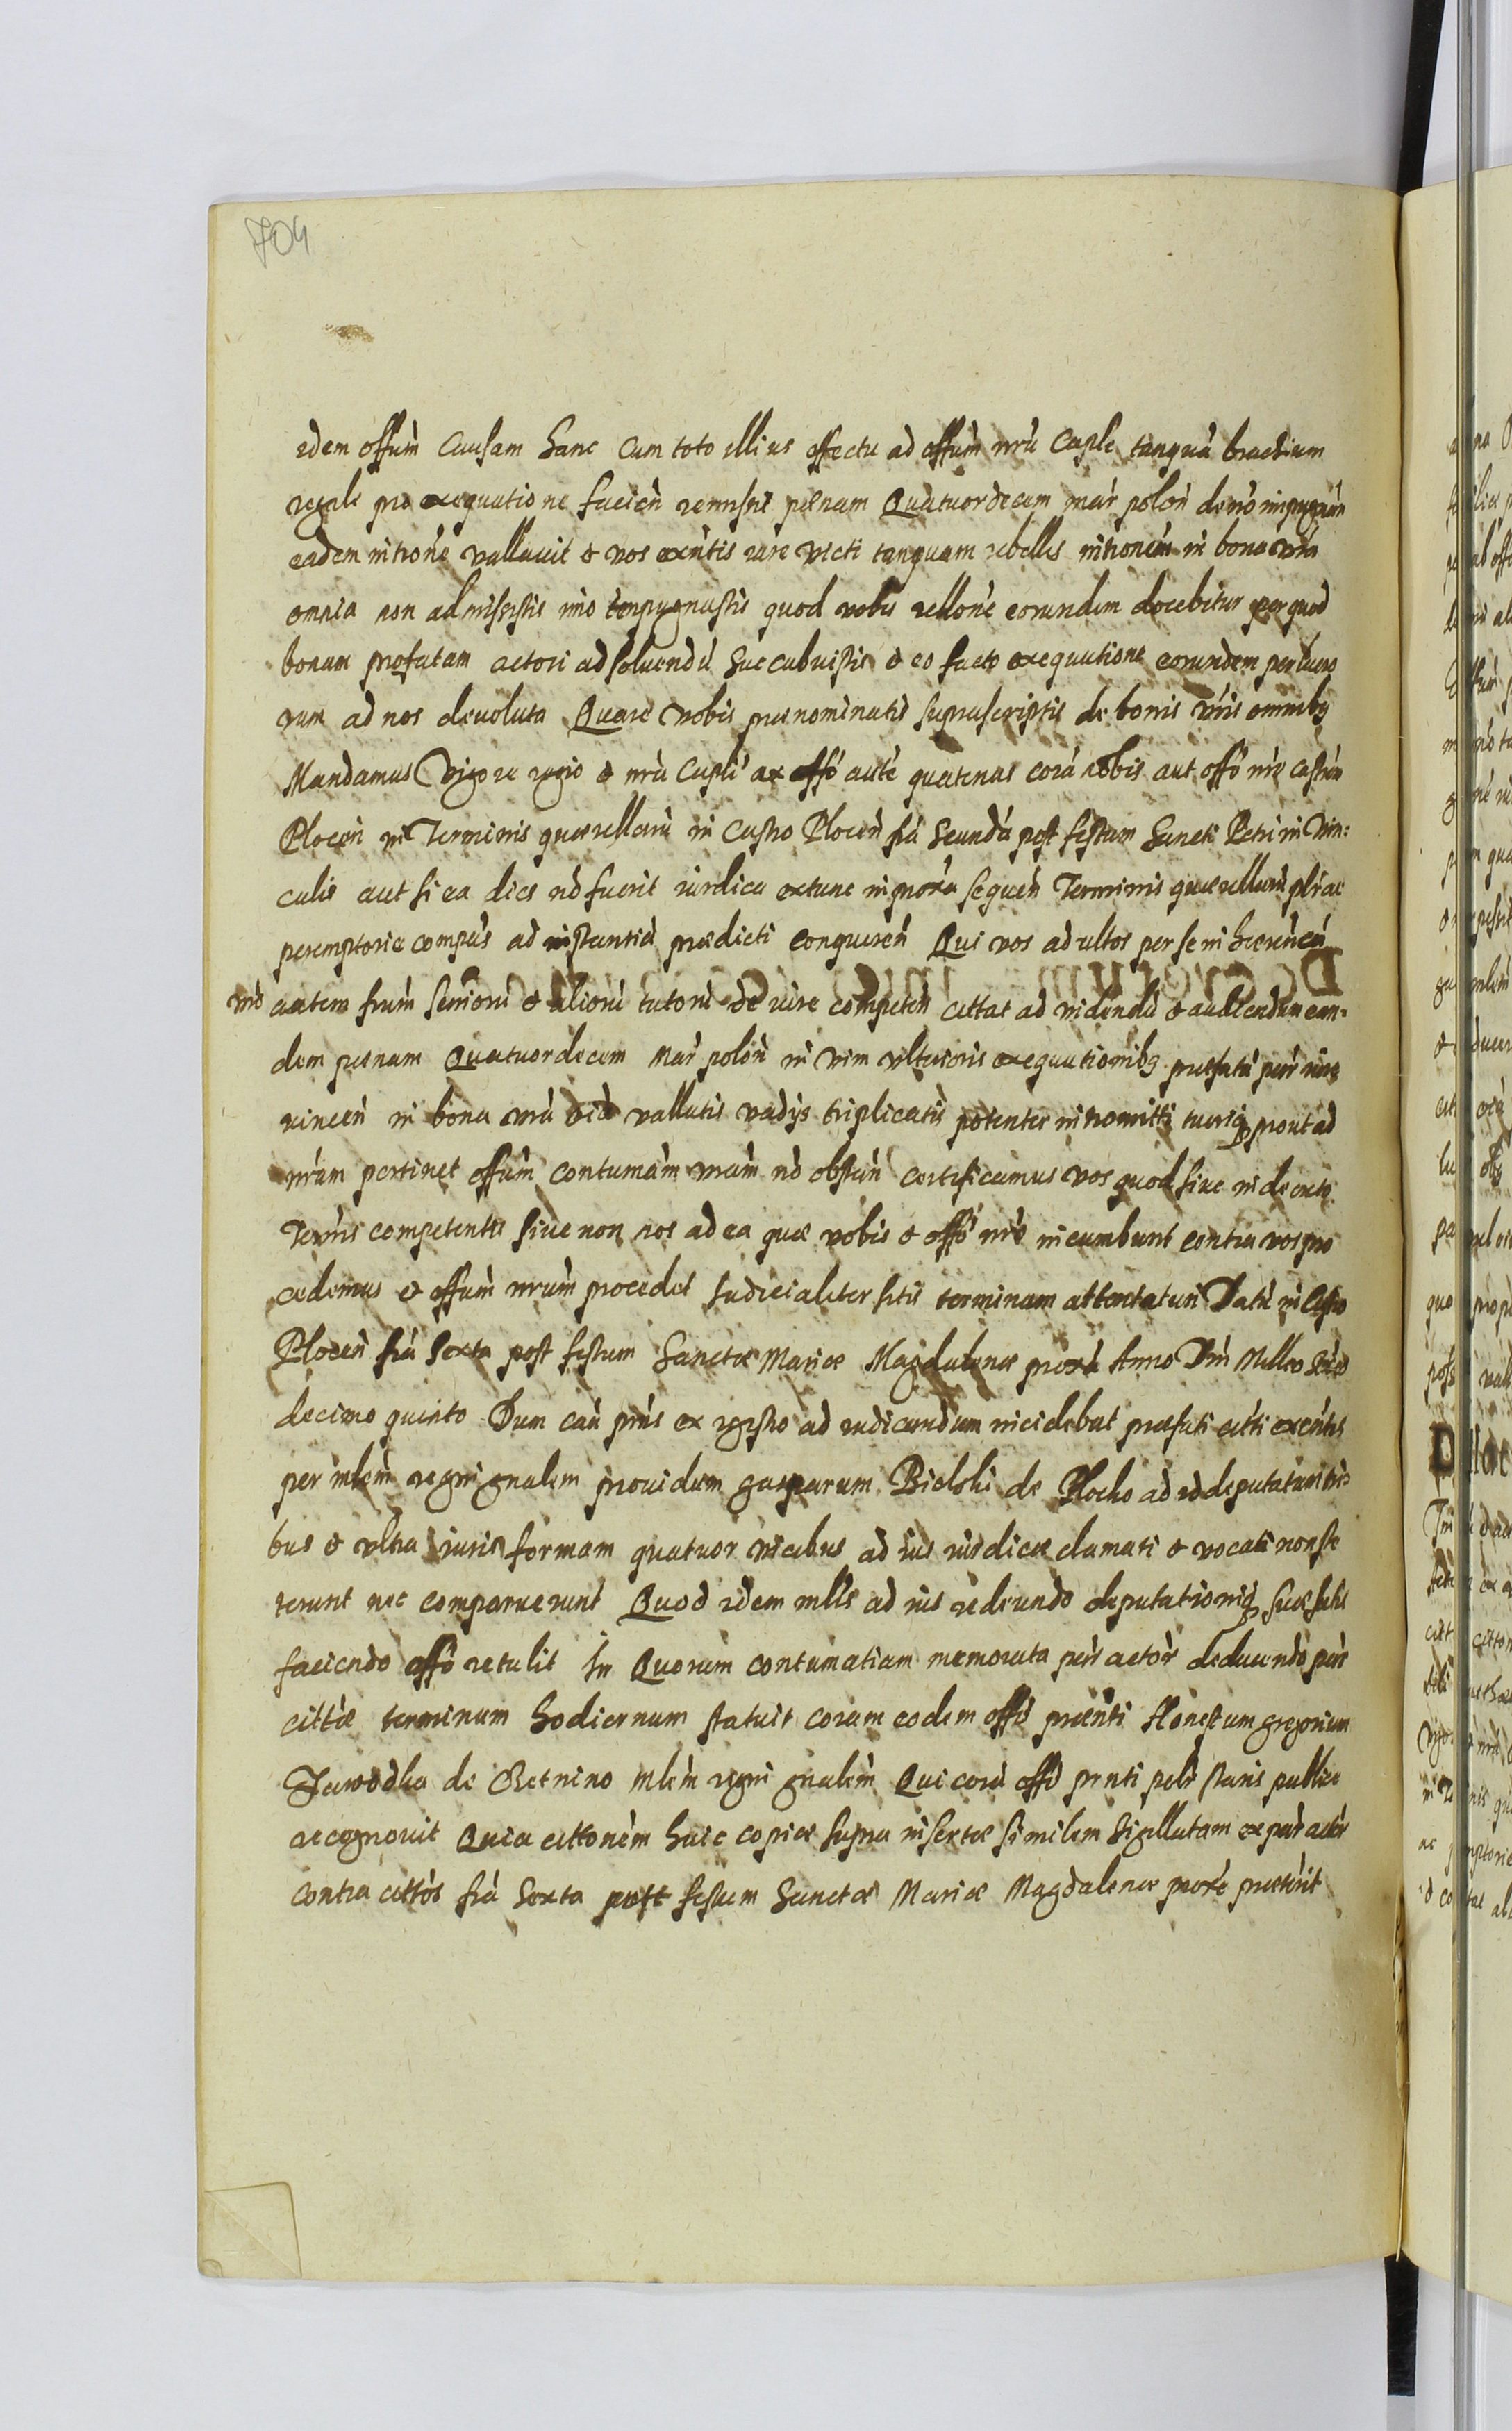 704
idem offum causam hanc cum toto illius effectu ad offum nrũ Caple tanquã brachium
regale pro exequutione facien remisit pœnam Quatuordecem mar polon de nõ impugnan
eadem intrõne vallauit et vos excũtis iure victi tanquam rebelles intronem in bona vra
omnia non admisistis imo impugnastis quod vobis rellone eorundem docebitur per quod
bonam prefatam actori ad soluendũ succubuistis et eo facto exequutione eorundem per
rum ad nos deuoluta Quare vobis prænominatis suprascriptis de bonis vris omnibq
Mandamus Vigore regio et nrũ Capli ac offo autẽ quatenus corã nobis aut offo nrõ castren
Plocen in Terminis quærellarũ in Castro Plocen fiã Secundã post festum Sancti Petri in Vin:
culis aut si ea dies nõ fuerit iurdica extunc in proxa sequen Terminis quærellarũ plr ac
peremptorie compũs ad instantiã prædicti conqueren Qui vos adultos per se in
autem frum seniorũ et aliorũ tutorũ de iure competen cittat ad videndũ et audiendum ean:
dem pœnam Quatuordecem Mar polon in vim vlterioris exequutionibq præfatã par iure
vincen in bona vrã vallatis vadys triplicatis potenter intromitti tuerique prout ad
nrum pertinet offum contumam vram nõ obstan certificamus vos quod siue in
Termis competentis siue non nos ad ea quæ nobis et offo nrõ incumbunt contra vos pro
cedemus et offum nrum procedet Judicialiter sitis terminum attentaturi Datũ in Castro
Plocen fiã Sexta post festum Sanctæ Mariæ Magdalenæ proxã Anno Dni Milleo
decimo quinto Dum cau prñs ex regestro ad iudicandum incidebat præfati citti excũtis
per mlem regni gnalem prouidum gasparum Bielski de Plocko ad id deputatum tri:
bus et vltra iuris formam quatuor vicibus ad ius iurdice clamati et vocati non ste
terunt nec comparuerunt Quod idem mlls ad ius redeundo deputationiq suæ satis
faciendo offo retulit In Quorum contumatiam memorata par actor deducendo par
cittæ terminum hodiernum statuit coram eodem offo præsenti Honestum gregorium
Jawodka de Betnino mlem regni gnalem Qui corã offo prnti pelr stans publice
recognouit Quia cittonem huic copiæ supra insertæ similem Sigillatam ex par actor
contra cittos fiã Sexta post festum Sanctæ Mariæ Magdalenæ proxe præterit